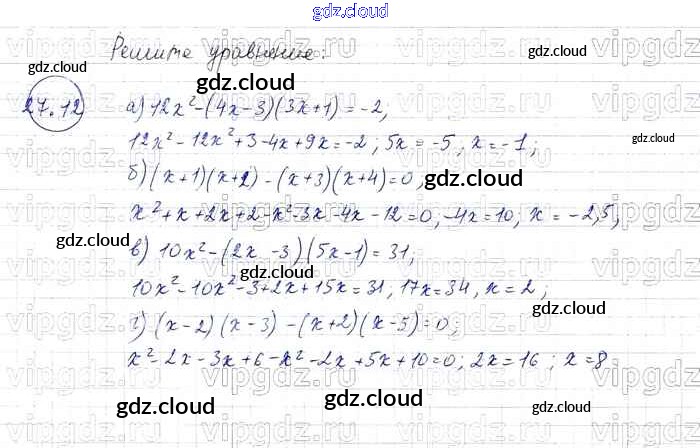 gdz.cloud
Решите уравнение:
gdz.cloud
gdz.cloud
gdz.cloud
27.12
а) 12x² - (4x - 3)(3x + 1) = -2,
gdz.cloud
12x² - 12x² + 3 - 4x + 9x = -2; 5x = -5, x = -1;
б) (x + 1)(x + 2) - (x + 3)(x + 4) = 0,
gdz.cloud
x² + x + 2x + 2 - x² - 3x - 4x - 12 = 0, -4x = 10, x = -2,5,
gdz.cloud
gdz.cloud
в) 10x² - (2x - 3)(5x - 1) = 31,
10x² - 10x² - 3 + 2x + 15x = 31, 17x = 34, x = 2;
gdz.cloud
г) (x - 2)(x - 3) - (x + 2)(x - 5) = 0;
x² - 2x - 3x + 6 - x² - 2x + 5x + 10 = 0; 2x = 16; x = 8
gdz.cloud
gdz.cloud
gdz.cloud
gdz.cloud
vipgdz.ru